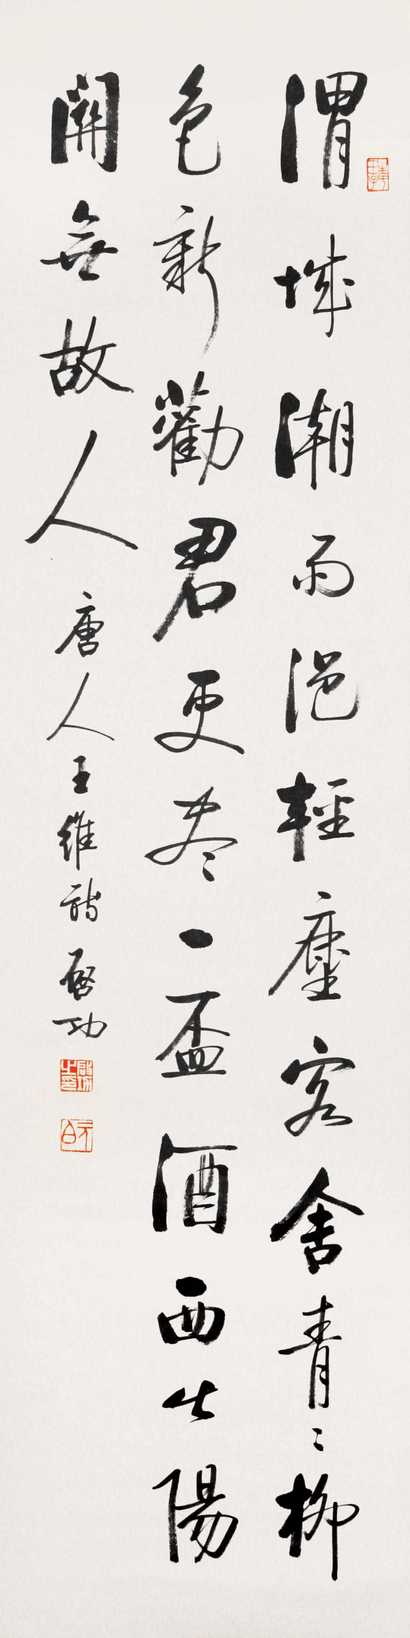 渭城潮雨浥輕塵客舍青〻柳
色新勸君更尽一盃酒西出陽
關無故人
唐人王維詩啓功